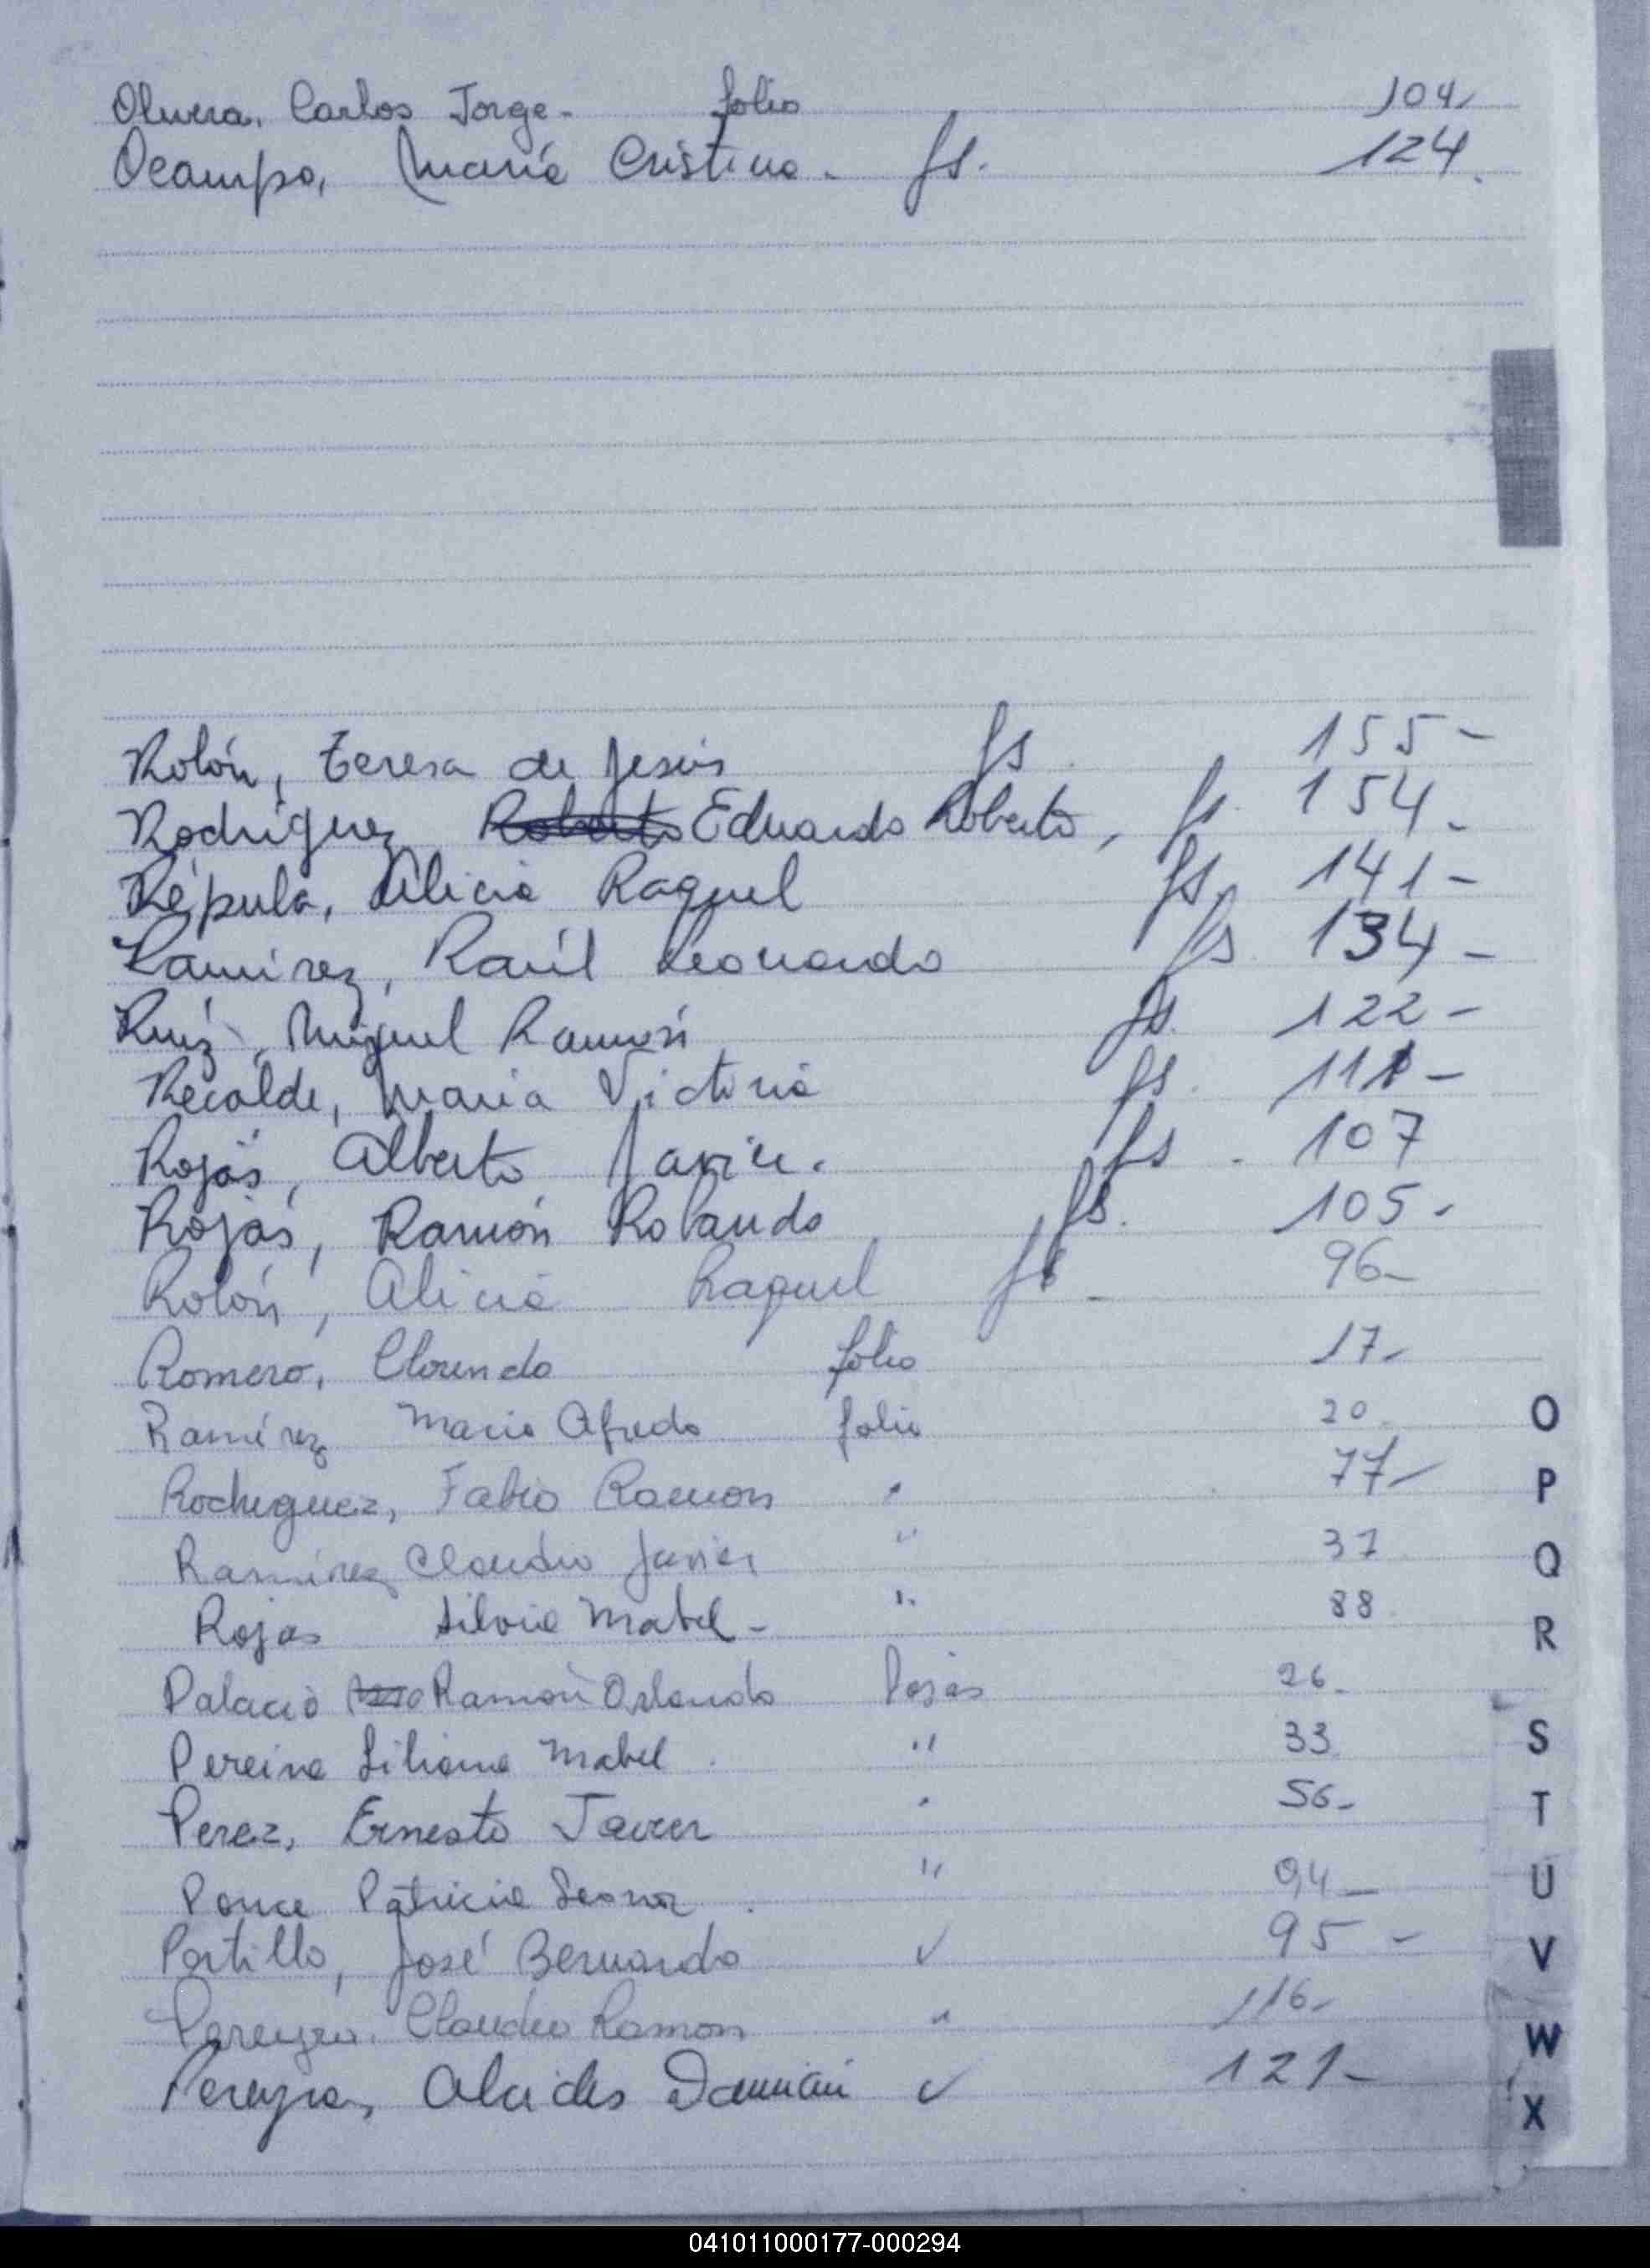 Olivera, Carlos Jorge- folio 104,
Ocampo, María Cristina. fs. 124.
Rolón, Teresa de Jesús fs. 155-
Rodríguez Roberto Eduardo Roberto, fs. 154-
Répula, Alicia Raquel fs, 141-
Ramírez, Raúl Leonardo fs. 134-
Ruíz, Miguel Ramón fs. 122-
Recalde, Maria Victoria fs. 111-
Rojas, Alberto Javier. fs. 107
Rojas, Ramón Rolando fs. 105-
Rolón, Alicia Raquel fs- 96-
Romero, Clorindo folio 17-
Ramírez Mario Alfredo folio 20.
Rodriguez, Fabio Ramon " 77-
Ramírez Claudio Javier " 37
Rojas Silvia Mabel- " 88
Palacio Ramón Orlando 26.
Pereira Liliana Mabel " 33
Perez, Ernesto Javier " 56-
Ponce Patricia Leonor " 94-
Portillo, José Bernardo ✓ 95-
Pereyra, Claudio Ramon " 116-
Pereyra, Alcides Damián ✓ 121-
O
P
Q
R
S
T
U
V
W
X
041011000177-000294